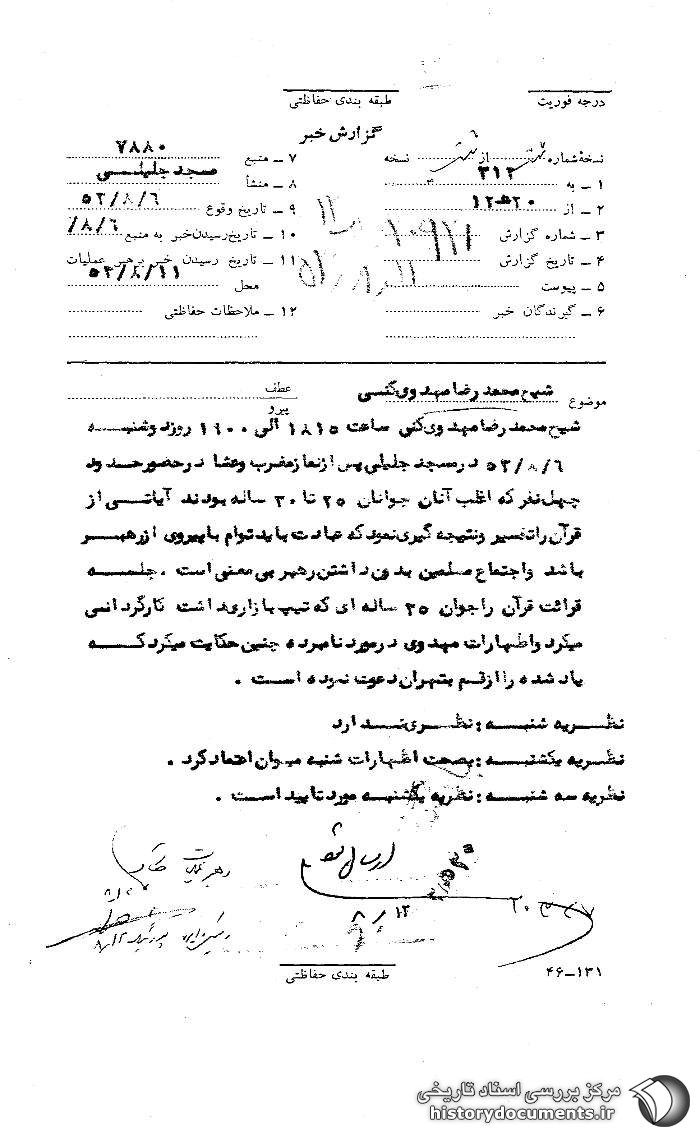 درجه فوریت
طبقه بندی حفاظتی
گزارش خبر
نسخهٔ شماره از نسخه
۱ ــ به ۳۱۲
۲ ــ از ۲۰ هـ ۱۲
۳ ــ شماره گزارش
۴ ــ تاریخ گزارش
۵ ــ پیوست
۶ ــ گیرندگان خبر
۷ ــ منبع ۷۸۸۰
۸ ــ منشأ مسجد جلیلی
۹ ــ تاریخ وقوع ۵۲/۸/۶
۱۰ ــ تاریخ رسیدن خبر به منبع /۸/۶
۱۱ ــ تاریخ رسیدن خبر برهبر عملیات
محل ۵۲/۸/۱۱
۱۲ ــ ملاحظات حفاظتی
موضوع شیخ محمد رضا مهدوی کنی
عطف
پیرو
شیخ محمد رضا مهدوی کنی ساعت ۱۸۱۵ الی ۱۹۰۰ روز دوشنبه
۵۲/۸/۶ در مسجد جلیلی پس از نماز مغرب و عشا در حضور حدود
چهل نفر که اغلب آنان جوانان ۲۵ تا ۳۰ ساله بودند آیاتی از
قرآن را تفسیر و نتیجه گیری نمود که عبادت باید توام با پیروی از رهبر
باشد و اجتماع مسلمین بدون داشتن رهبر بی معنی است . جلسه
قرائت قرآن را جوان ۲۵ ساله ای که تیپ بازاری داشت کارگردانی
میکرد و اظهارات مهدوی در مورد نامبرده چنین حکایت میکرد که
یاد شده را از قم بتهران دعوت نموده است .
نظریه شنبه : نظری ندارد
نظریه یکشنبه : بصحت اظهارات شنبه میوان اعتماد کرد .
نظریه سه شنبه : نظریه یکشنبه مورد تایید است .
رهبر عملیات
ارسال شد
۸/۱۲
طبقه بندی حفاظتی
۴۶-۱۳۱
مرکز بررسی اسناد تاریخی
historydocuments.ir